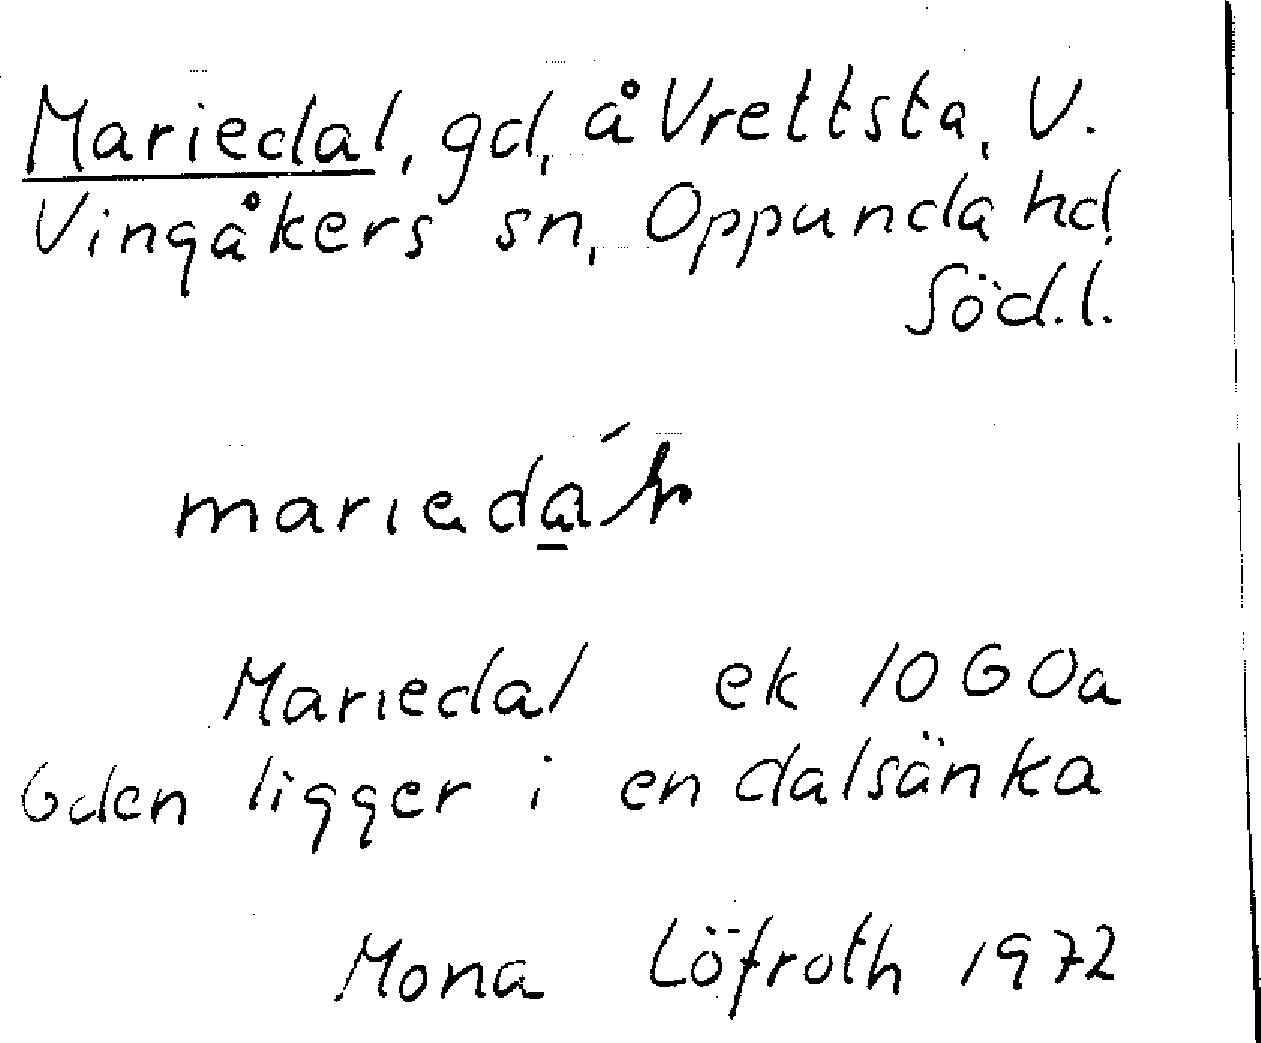 Mariedal, gd, å Vrettsta, V.
Vingåkers sn, Oppunda hd,
Söd.l.
Mariedal ek 10G0a
Gden ligger i en dalsänka
Mona Löfroth 1972